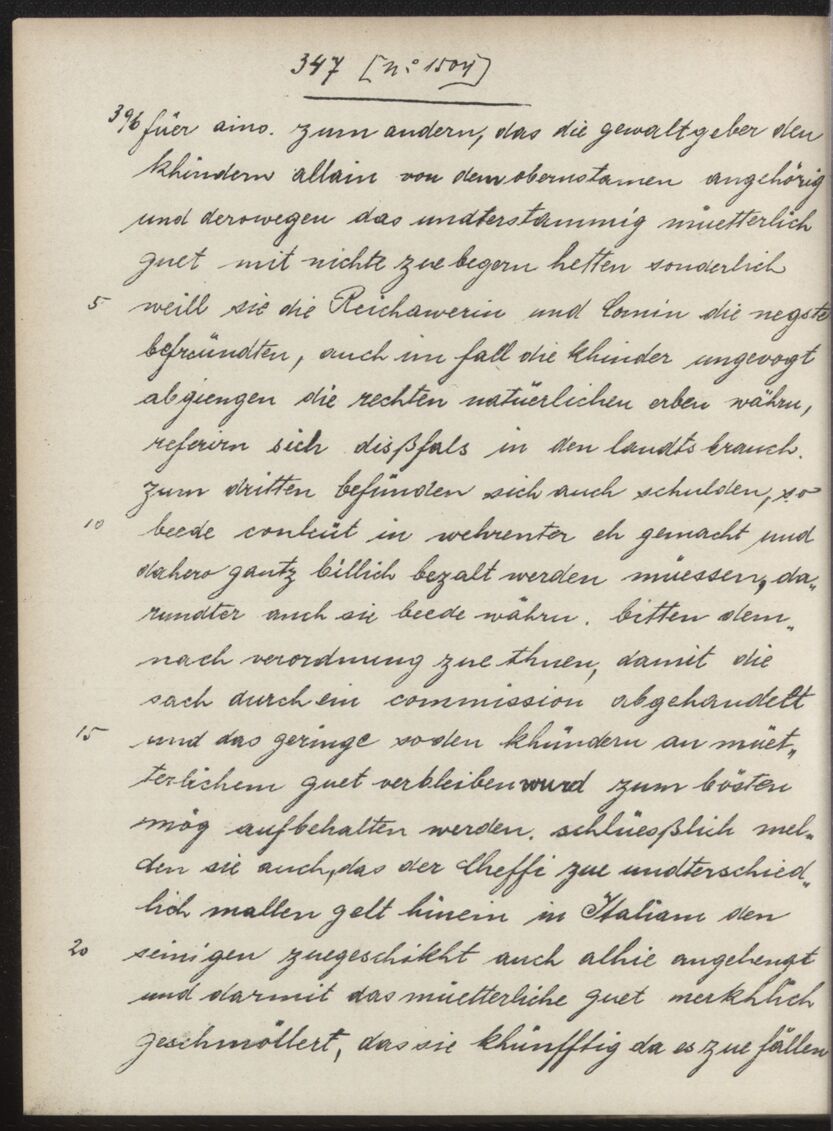 347 [nº 1504]
396 füer aino. zum andern, das die gewaltgeber den
khindern allain von dem obernstamen angehörig
und derowegen das undterstammig müetterlich
guet mit nichte zue begern hetten sonderlich
5 weill sie die Reichawerin und Comin die negste
befreündten, auch im fall die khinder ungevogt
abgiengen die rechten natüerlichen erben währn,
referirn sich disßfals in den landts brauch.
zum dritten befünden sich auch schulden, so
10 beede conleüt in wehrenter eh gemacht und
dahero gantz billich bezalt werden müessen, da„
rundter auch sie beede währn. bitten dem„
nach verordnung zue thuen, damit die
sach durch ein commission abgehandelt
15 und das geringe so den khündern an müet„
terlichem guet verbleiben wurd zum bösten
mög aufbehalten werden. schlüesßlich mel„
den sie auch, das der Cheffi zue undterschied„
lich mallen gelt hinein in Italiam den
20 seinigen zuegeschikht auch alhie angehengt
und darmit das müetterliche guet merkhlich
geschmöllert, das sie khünfftig da es zue fällen